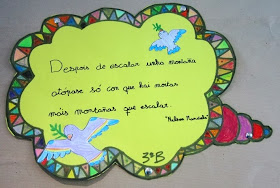 Despois de escalar unha montaña
atópase só con que hai moitas
máis montañas que escalar.
"Nelson Mandela"
3ºB